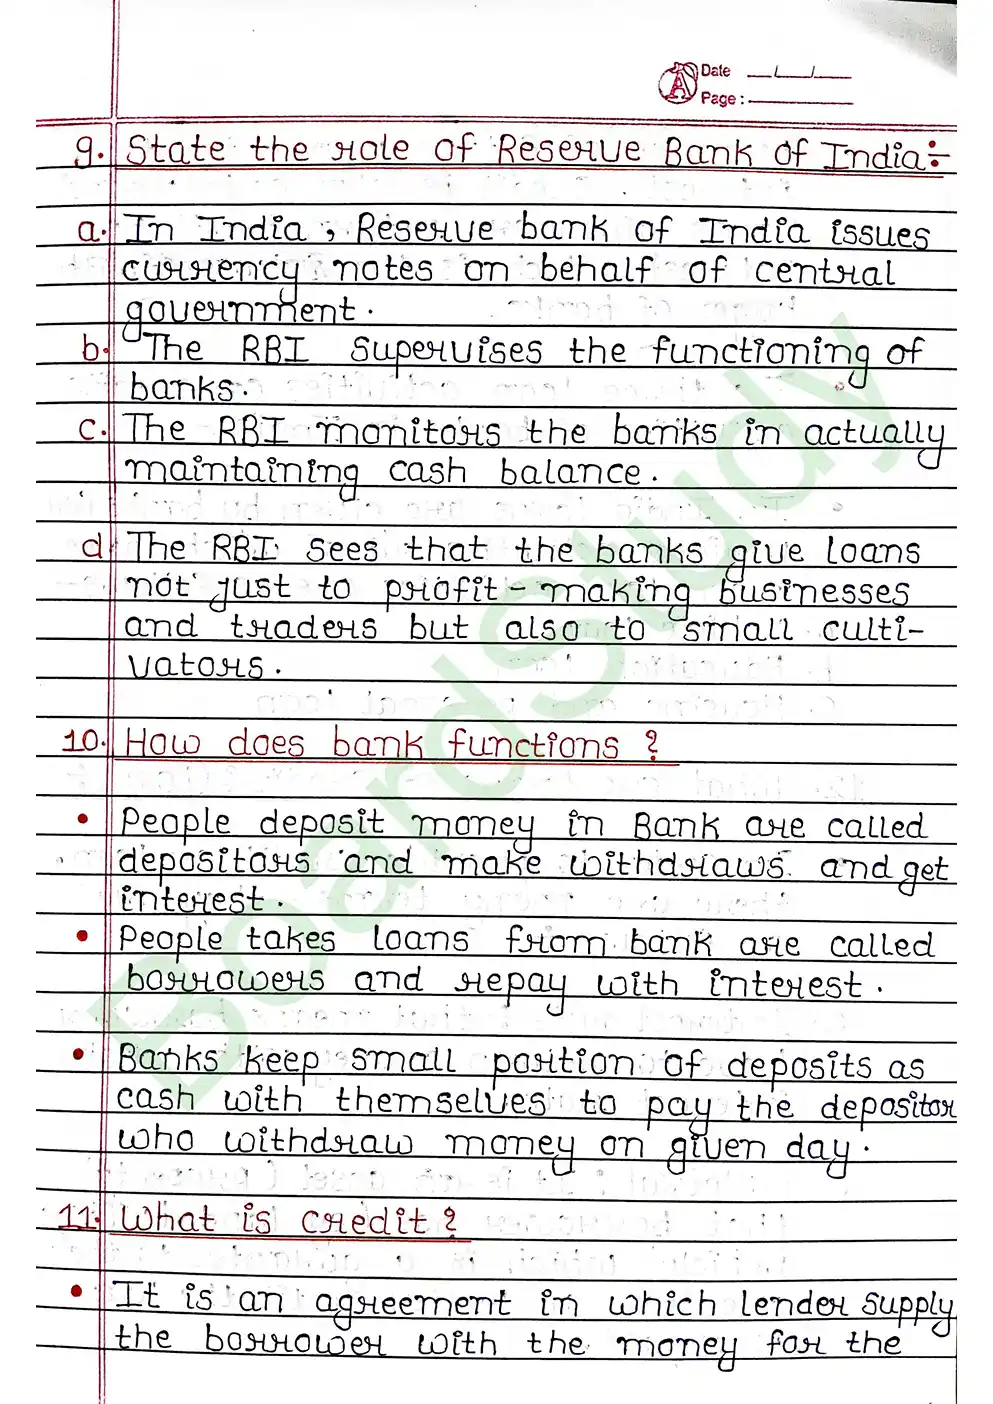 Date __/__/__
Page : ________
9. State the role of Reserve Bank of India:-
a. In India , Reserve bank of India issues
currency notes on behalf of central
government.
b. The RBI supervises the functioning of
banks.
c. The RBI monitors the banks in actually
maintaining cash balance.
d The RBI sees that the banks give loans
not just to profit - making businesses
and traders but also to small culti-
vators.
10. How does bank functions ?
• People deposit money in Bank are called
depositors and make withdraws and get
interest.
• People takes loans from bank are called
borrowers and repay with interest.
• Banks keep small portion of deposits as
cash with themselves to pay the depositor
who withdraw money on given day.
11. What is credit ?
• It is an agreement in which lender supply
the borrower with the money for the
BoardStudy